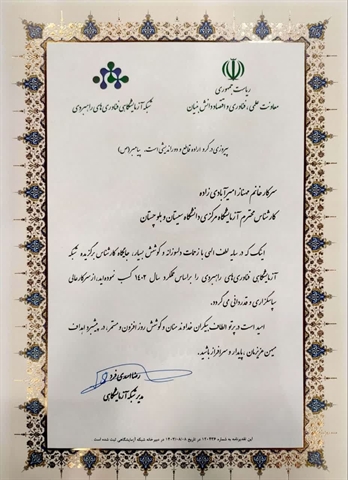 ریاست جمهوری
معاونت علمی، فناوری و اقتصاد دانش بنیان
شبکه آزمایشگاهی فناوری‌های راهبردی
پیروزی در گرو اراده قاطع و دوراندیشی است. پیامبر(ص)
سرکار خانم مهناز امیرآبادی زاده
کارشناس محترم آزمایشگاه مرکزی دانشگاه سیستان و بلوچستان
اینک که در سایه لطف الهی با زحمات دلسوزانه و کوشش بسیار، جایگاه کارشناس برگزیده شبکه
آزمایشگاهی فناوری‌های راهبردی را براساس عملکرد سال ۱۴۰۲ کسب نموده‌اید، از سرکارعالی
سپاسگزاری و قدردانی می گردد.
امید است در پرتو الطاف بیکران خداوند منان و کوشش روز افزون و مستمر، در پیشبرد اهداف
میهن عزیزمان، پایدار و سرافراز باشید.
رضا اسدی فرد
مدیر شبکه آزمایشگاهی
این تقدیرنامه به شماره ۱۲۰۳۴۶ در تاریخ ۱۴۰۳/۰۸/۰۸ در دبیرخانه شبکه آزمایشگاهی ثبت شده است.